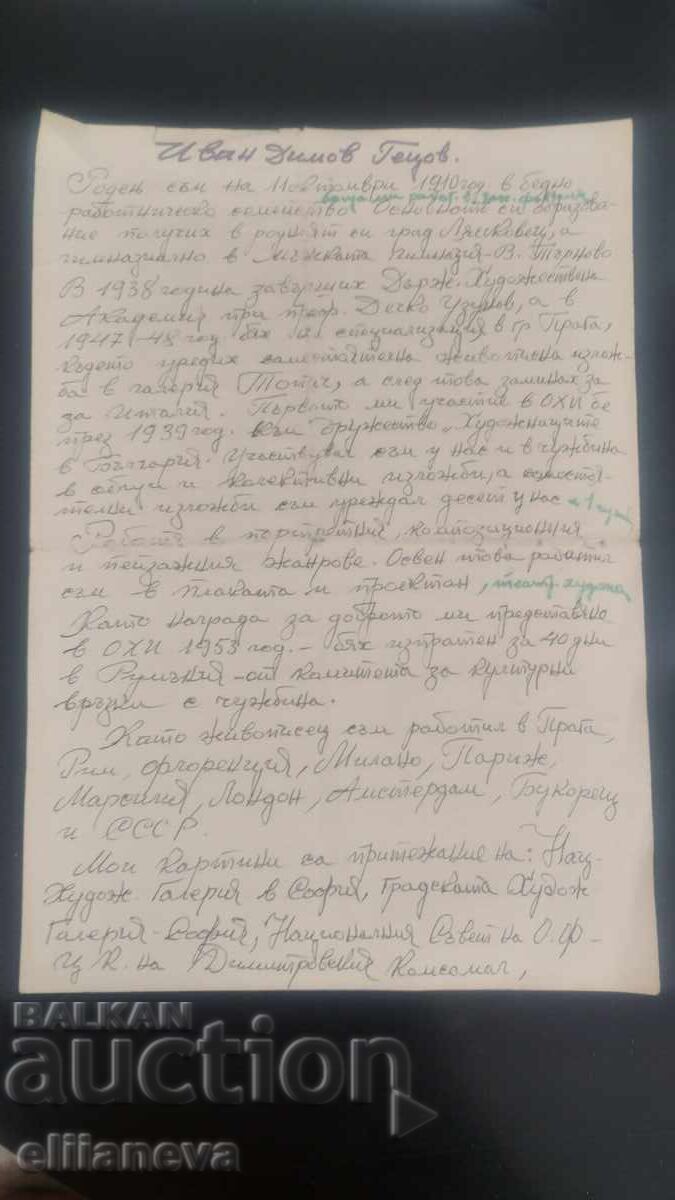 Иван Димов Гецов.
Роден съм на 1 октомври 1910 год. в бедно
работническо семейство. Основното си образова-
ние получих в родният си град Лясковец, а
гимназиално в Мъжката гимназия - В. Търново
В 1938 година завърших Държ. Художествена
Академия при проф. Дечко Узунов, а в
1947-48 год. бях на специализация в гр. Прага,
където уредих самостоятелна живописна излож-
ба в галерия Топич, а след това заминах за
за Италия. Първото ми участие в ОХИ бе
през 1939 год. към дружество "Художниците
в България. Участвувал съм у нас и в чужбина
в общи и колективни изложби, а самостоя-
телни изложби съм уреждал десет у нас
Работя в портретния, композиционния
и пейзажния жанрове. Освен това работил
съм в плаката и проектан, театр. худож
Като награда за доброто ми представяне
в ОХИ 1953 год. - бях изпратен за 40 дни
в Румъния - от комитета за културни
връзки с чужбина.
Като живописец съм работил в Прага,
Рим, Флоренция, Милано, Париж,
Марсилия, Лондон, Амстердам, Букорещ
и СССР.
Мои картини са притежание на: Нац.
Худож. Галерия в София, Градската Худож
Галерия - София, Националния Съвет на О.Ф -
Ц К. на Димитровския Комсомол,
BALKAN
auction
eliianeva